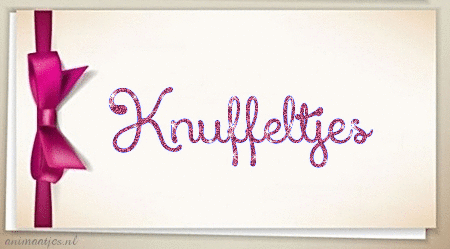 Knuffeltjes
animaatjes.nl